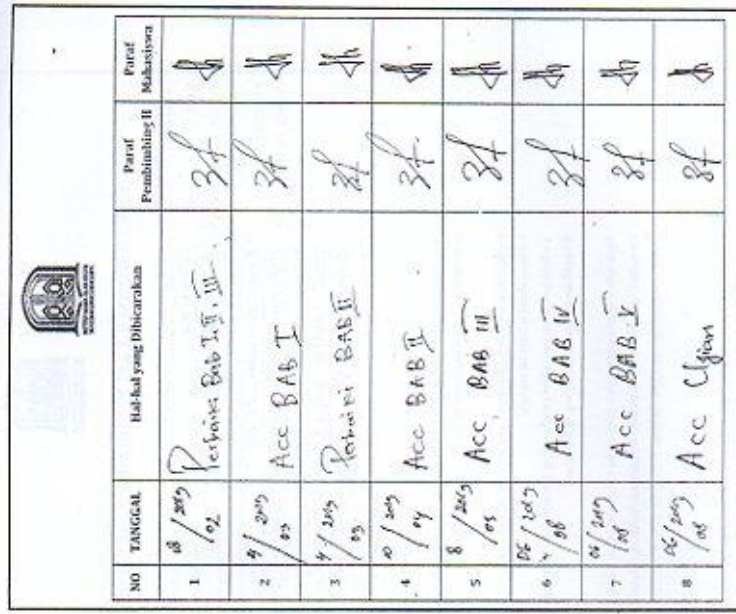 NO TANGGAL Hal-hal yang Dibicarakan Paraf Pembimbing II Paraf Mahasiswa
1 18/2019 02 Perbaiki Bab I, II, III
2 2019 03 Acc BAB I
3 4/2019 03 Perbaiki BAB II
4 10/2019 04 Acc BAB II
5 8/2019 05 Acc BAB III
6 06/2019 08 Acc BAB IV
7 06/2019 08 Acc BAB V
8 06/2019 08 Acc Ujian